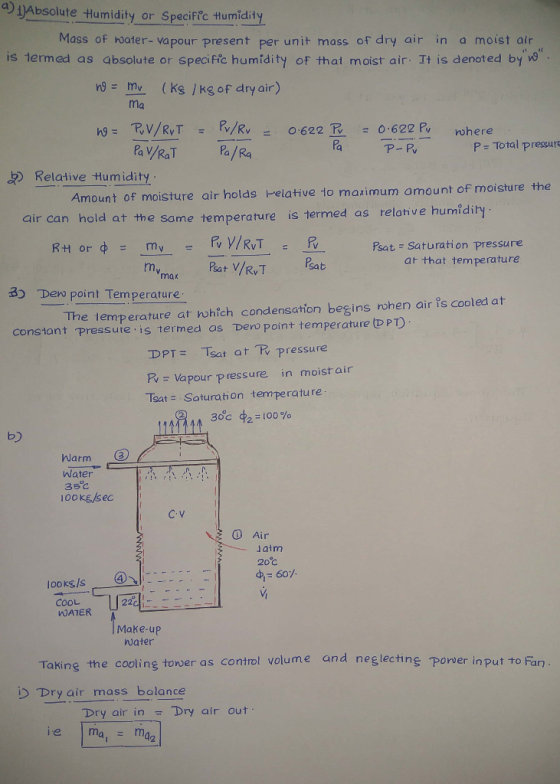 a) 1) Absolute Humidity or Specific Humidity
Mass of water-vapour present per unit mass of dry air in a moist air
is termed as absolute or specific humidity of that moist air. It is denoted by "ω".
ω = mv/ma (kg/kg of dry air)
ω = (PvV/RvT)/(PaV/RaT) = (Pv/Rv)/(Pa/Ra) = 0.622 Pv/Pa = 0.622 Pv/(P-Pv) where
P = Total pressure
2) Relative Humidity.
Amount of moisture air holds relative to maximum amount of moisture the
air can hold at the same temperature is termed as relative humidity.
RH or φ = mv/mvmax = (Pv V/RvT)/(Psat V/RvT) = Pv/Psat Psat = Saturation pressure
at that temperature
3) Dew point Temperature.
The temperature at which condensation begins when air is cooled at
constant pressure is termed as Dew point temperature (DPT).
DPT = Tsat at Pv pressure
Pv = Vapour pressure in moist air
Tsat = Saturation temperature.
b)
② 30°C φ2=100%
Warm ③
Water
35°C
100KG/sec
C.V
① Air
1atm
20°C
φ1=60%
V̇1
100KG/S ④
COOL 22°C
WATER
Make-up
water
Taking the cooling tower as control volume and neglecting power input to Fan.
i) Dry air mass balance
Dry air in = Dry air out.
ie ṁa1 = ṁa2